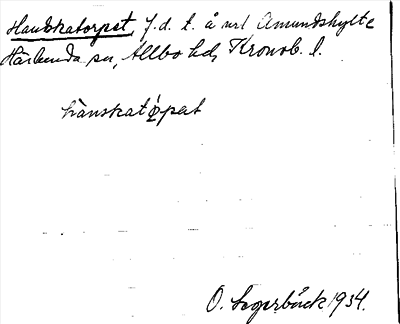 Handskatorpet, f.d. t. å urt Amundshylte
Härlunda sn, Allbo hd, Kronob. l.
hànskatɷ̀ pet
O. Sagerbäck 1934.